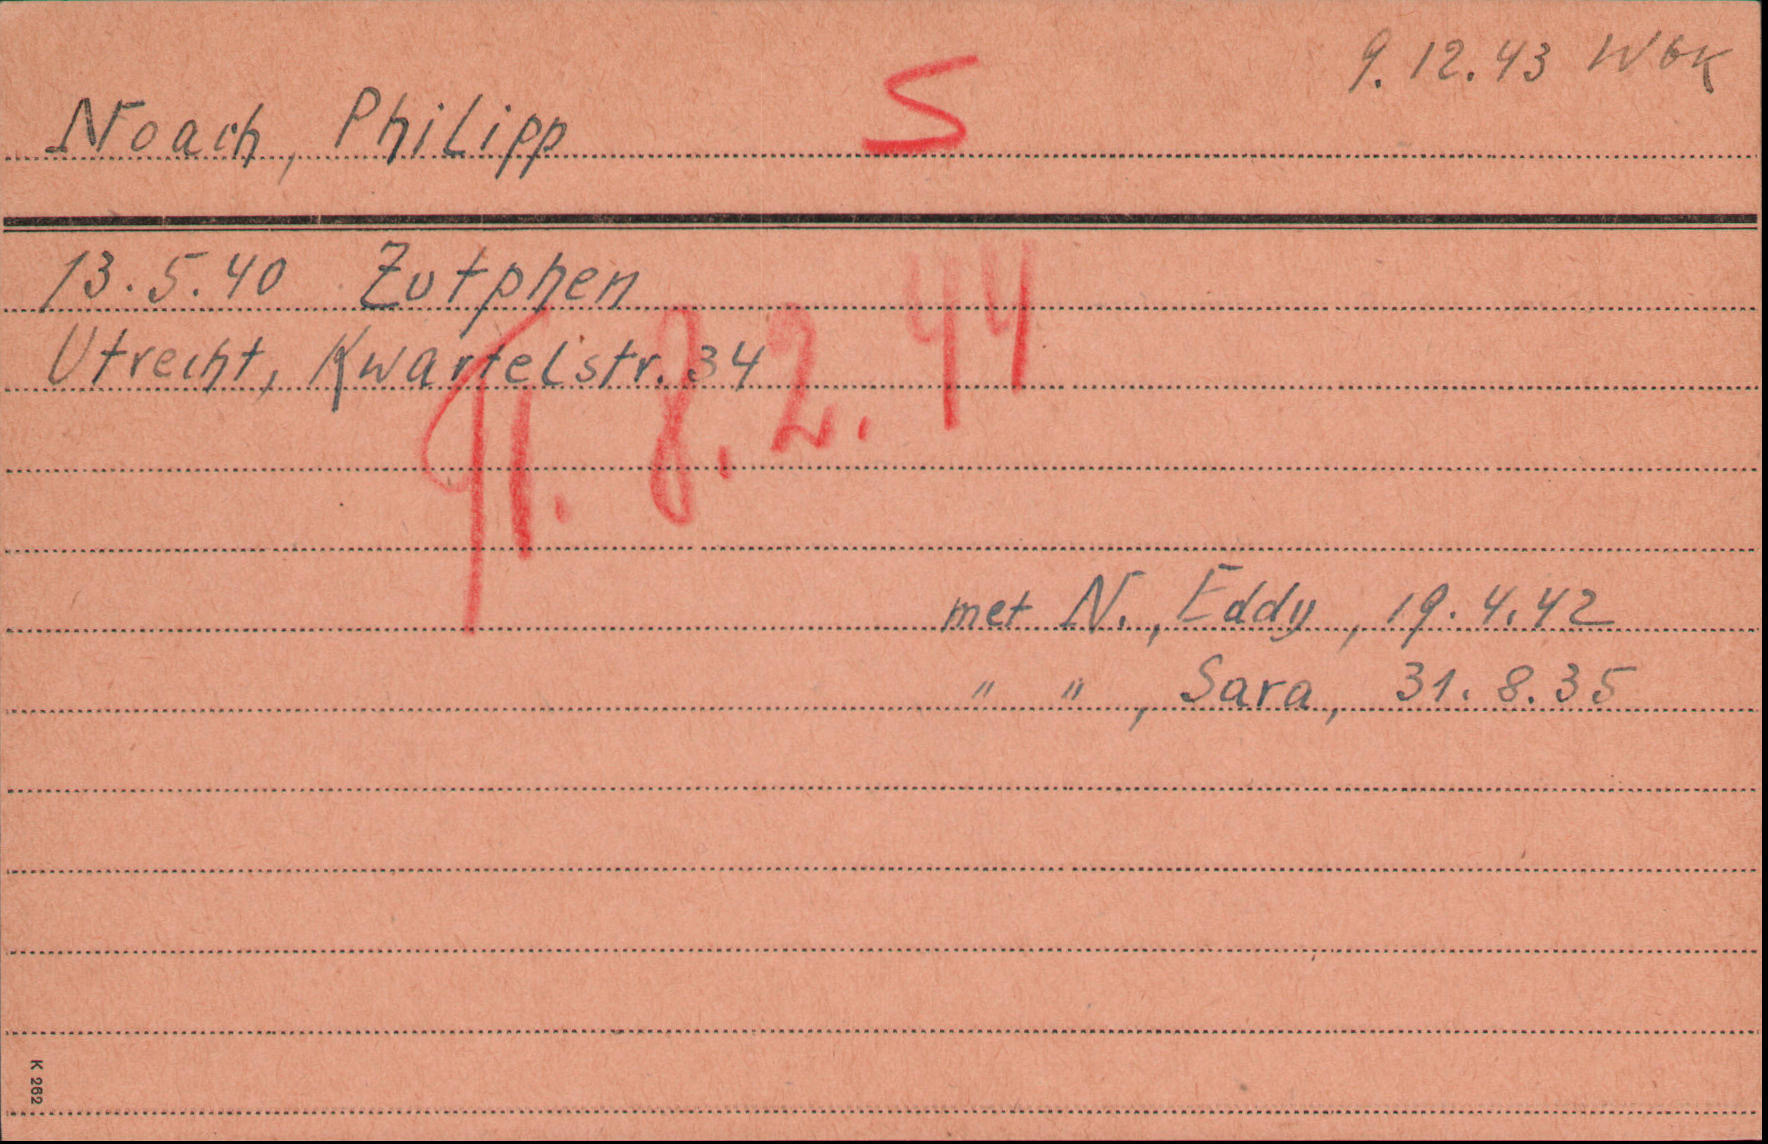 9.12.43 Wbk
Noach, Philipp S
13.5.40 Zutphen
Utrecht, Kwartelstr. 34
8.2.44
met N., Eddy, 19.4.42
" " , Sara, 31.8.35
K 262